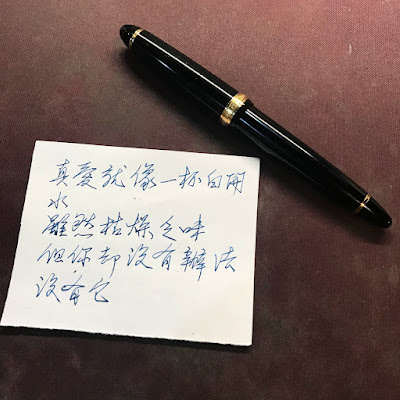 真愛就像一杯白開
水
雖然枯燥乏味
但你卻沒有辦法
沒有它